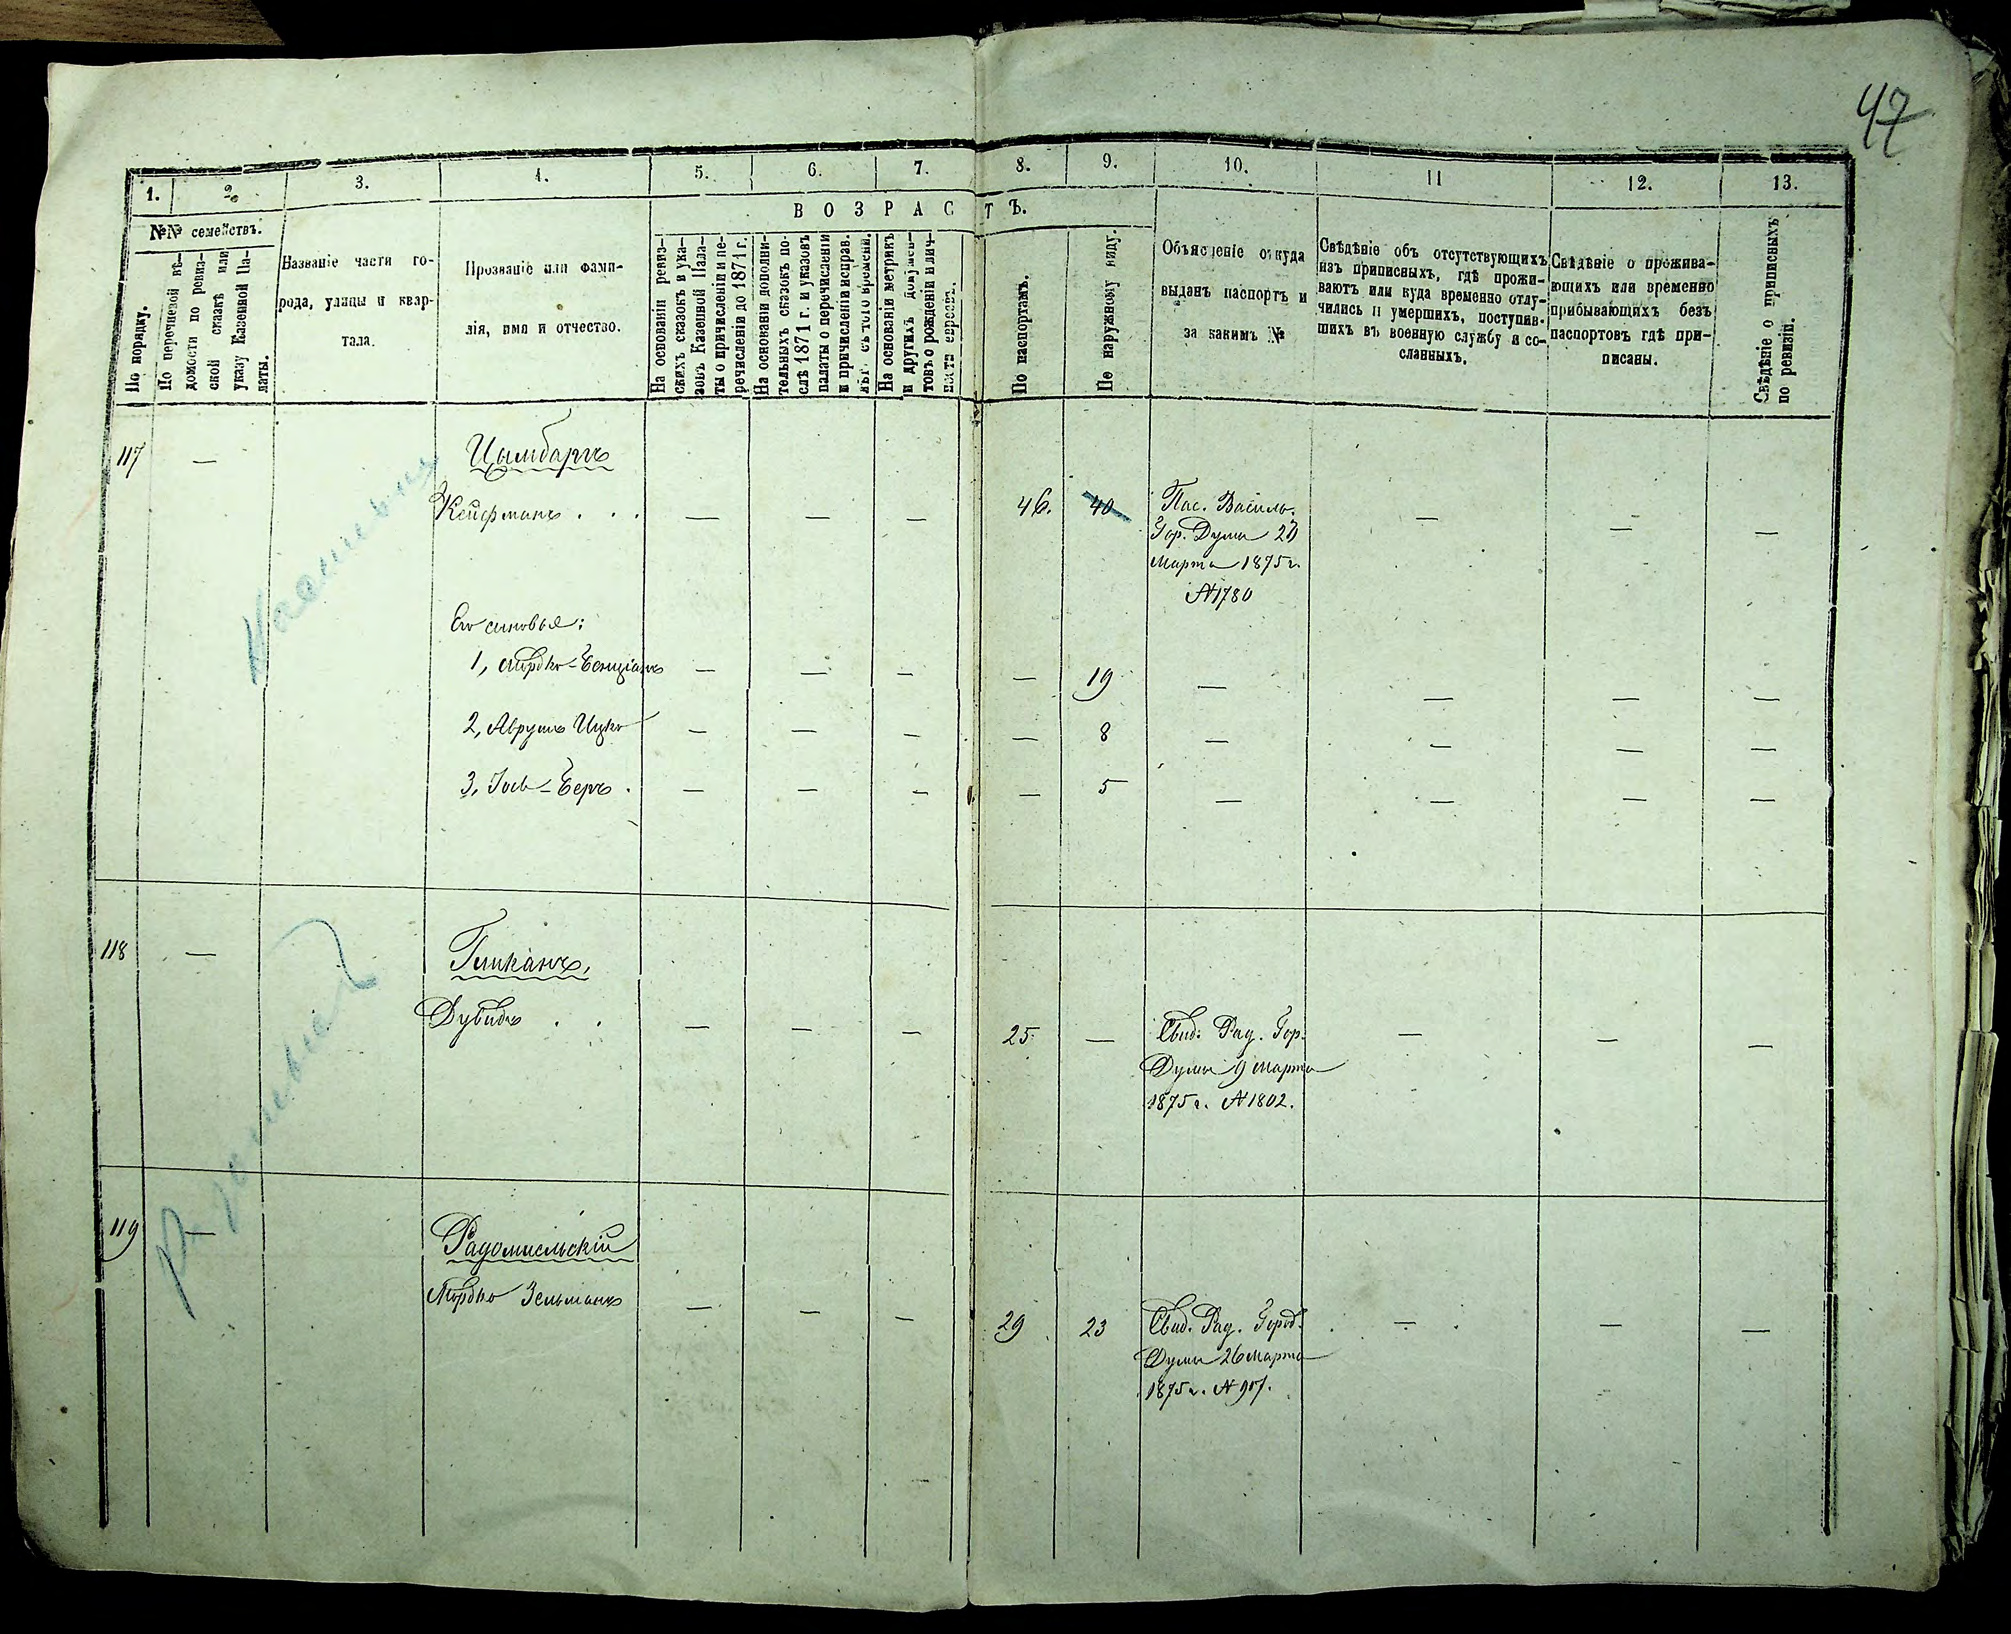 47
1. 2. 3. 4. 5. 6. 7. 8. 9. 10. 11 12. 13.
ВОЗРАСТЪ.
№№ семействъ.
По порядку.
По перечневой вѣ-
домости по ревиз-
ской сказкѣ или
указу Казенной Па-
латы.
Названіе части го-
рода, улицы и квар-
тала.
Прозваніе или фами-
лія, имя и отчество.
На основаніи ревиз-
скихъ сказокъ и ука-
зовъ Казенной Пала-
ты о причисленіи и пе-
речисленіи до 1871 г.
На основаніи дополни-
тельныхъ сказокъ по-
слѣ 1871 г. и указовъ
палаты о перечисленіи
и причисленіи исправ.
лѣт. съ того времени.
На основаніи метрикъ
и другихъ докумен-
товъ о рожденіи и лич-
ности евреевъ.
По паспортамъ.
По наружному виду.
Объясненіе откуда
выданъ паспортъ и
за какимъ №
Свѣдѣніе объ отсутствующихъ
изъ приписныхъ, гдѣ прожи-
ваютъ или куда временно отлу-
чились и умершихъ, поступив-
шихъ въ военную службу и со-
сланныхъ.
Свѣдѣніе о прожива-
ющихъ или временно
прибывающихъ безъ
паспортовъ гдѣ при-
писаны.
Свѣдѣніе о приписныхъ
по ревизіи.
117 — Цымбаргъ
Кейфманъ . . . — — — 46. 40 Пас. Василь. — — —
Гор. Думы 20
Марта 1875 г.
№ 1780
Его сыновья:
1, Мордко-Бенціанъ — — — — 19 — — — —
2, Аврумъ Ицко — — — — 8 — — — —
3, Іось-Беръ . — — — — 5 — — — —
118 —
Дувидъ . . — — — 25 — Свид. Рад. Гор. — — —
Думы 9 Марта
1875 г. № 1802.
119 — Радомысльскій
Мордко Зельманъ — — — 29 23 Свид. Рад. Город. — — —
Думы 26 Марта
1875 г. № 907.